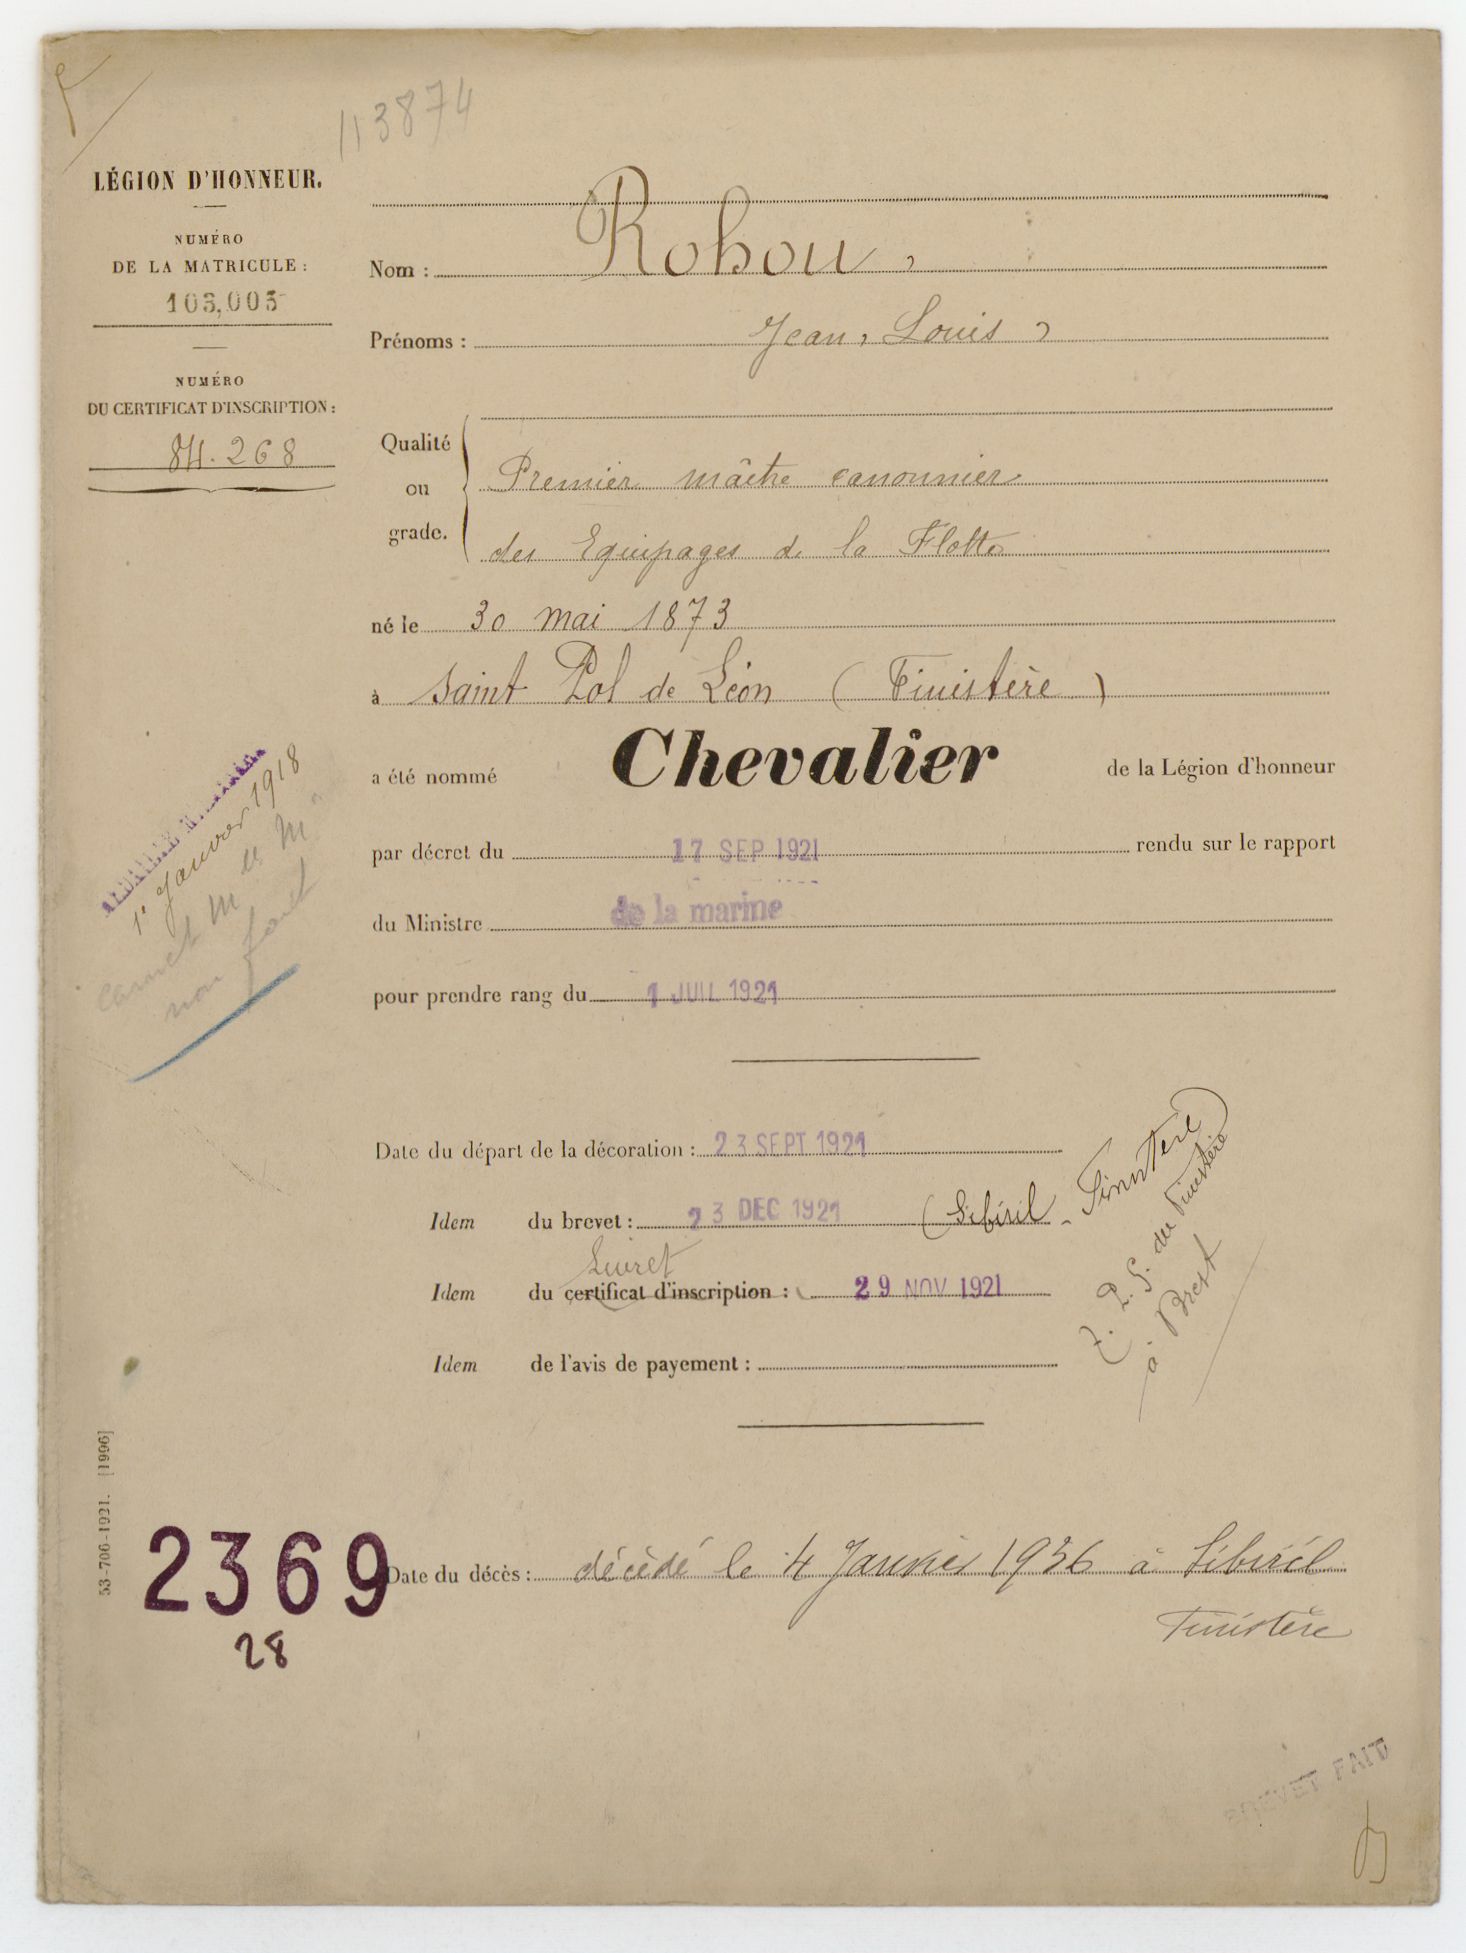 113874
LÉGION D'HONNEUR.
NUMÉRO
DE LA MATRICULE :
103,005
NUMÉRO
DU CERTIFICAT D'INSCRIPTION :
84.268
Nom : Rohou,
Prénoms : Jean, Louis,
Qualité
ou
grade.
Premier maître canonnier
des Equipages de la Flotte
né le 30 mai 1873
à Saint Pol de Léon (Finistère)
a été nommé Chevalier de la Légion d'honneur
par décret du 17 SEP 1921 rendu sur le rapport
du Ministre de la marine
pour prendre rang du 1 JUIL 1921
1er Janvier 1918
carnet M
non
Date du départ de la décoration : 23 SEPT 1921
Idem du brevet : 23 DEC 1921 (Sibiril - Finistère)
Livret
Idem du certificat d'inscription : 29 NOV 1921
Idem de l'avis de payement :
T. P. G. du Finistère
à Brest
53-706-1921. [1999]
2369
28
Date du décès : décédé le 4 Janvier 1936 à Sibiril
Finistère
BREVET FAIT